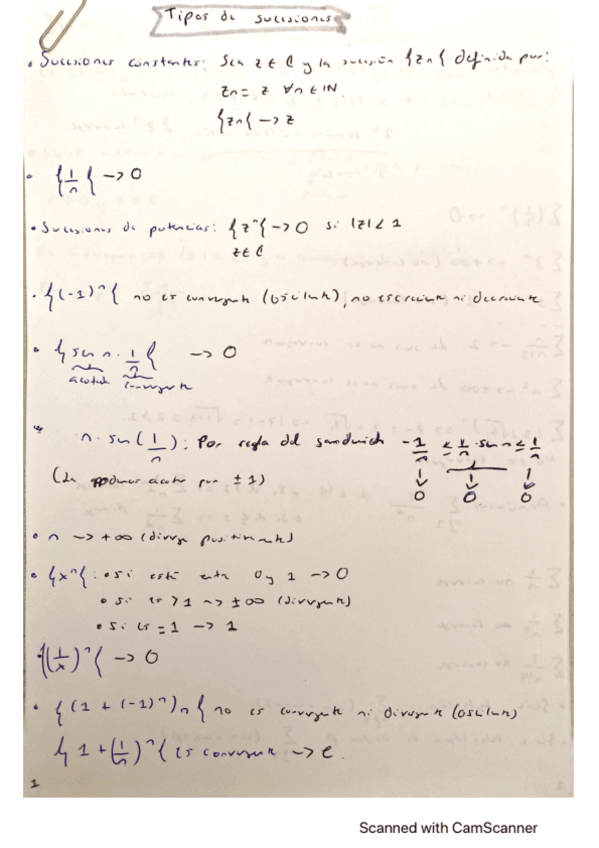 Tipos de sucesiones
• Sucesiones constantes: Sea z ∈ ℂ y la sucesión {zn{ definida por:
zn = z ∀n ∈ IN
{zn{ -> z
• {1/n{ -> 0
• Sucesiones de potencias: {z^n{ -> 0 si |z| < 1
z ∈ ℂ
• {(-1)^n{ no es convergente (oscilante), no es creciente ni decreciente
• {sen n · 1/n{ -> 0
acotada convergente
n · sen(1/n): Por regla del sandwich -1/n ≤ 1/n · sen n ≤ 1/n
(la podemos acotar por ±1) 0 0 0
• n -> +∞ (diverge positivamente)
• {x^n{: • si está entre 0 y 1 -> 0
• si es > 1 -> ±∞ (divergente)
• si es = 1 -> 1
{(1/x)^n{ -> 0
• {(1 + (-1)^n)n{ no es convergente ni divergente (oscilante)
{1 + (1/n)^n{ es convergente -> e.
1
Scanned with CamScanner